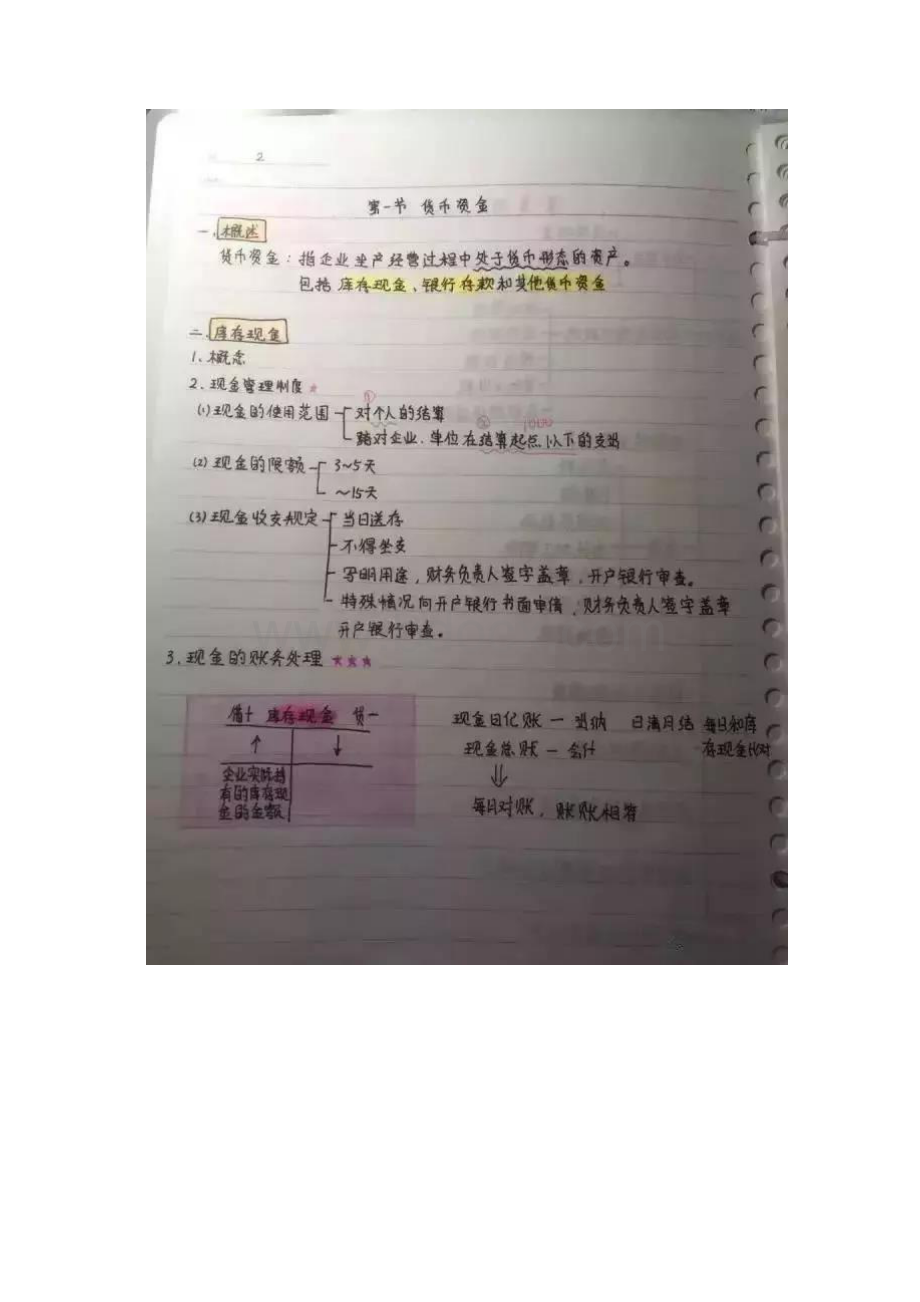 2
第一节 货币资金
一、概述
货币资金：指企业生产经营过程中处于货币形态的资产。
包括库存现金、银行存款和其他货币资金
二、库存现金
1、概念
2、现金管理制度 ★
①
(1)现金的使用范围 对个人的结算
② 1000
对企业、单位在结算起点以下的支出
(2)现金的限额 3~5天
~15天
(3)现金收支规定 当日送存
不得坐支
写明用途，财务负责人签字盖章，开户银行审查。
特殊情况向开户银行书面申请，财务负责人签字盖章
开户银行审查。
3、现金的账务处理 ★★★
借+ 库存现金 贷-
↑ ↓
企业实际持
有的库存现
金的金额
现金日记账 — 出纳 日清月结 每日和库
现金总账 — 会计 存现金核对
⇓
每月对账，账账相符